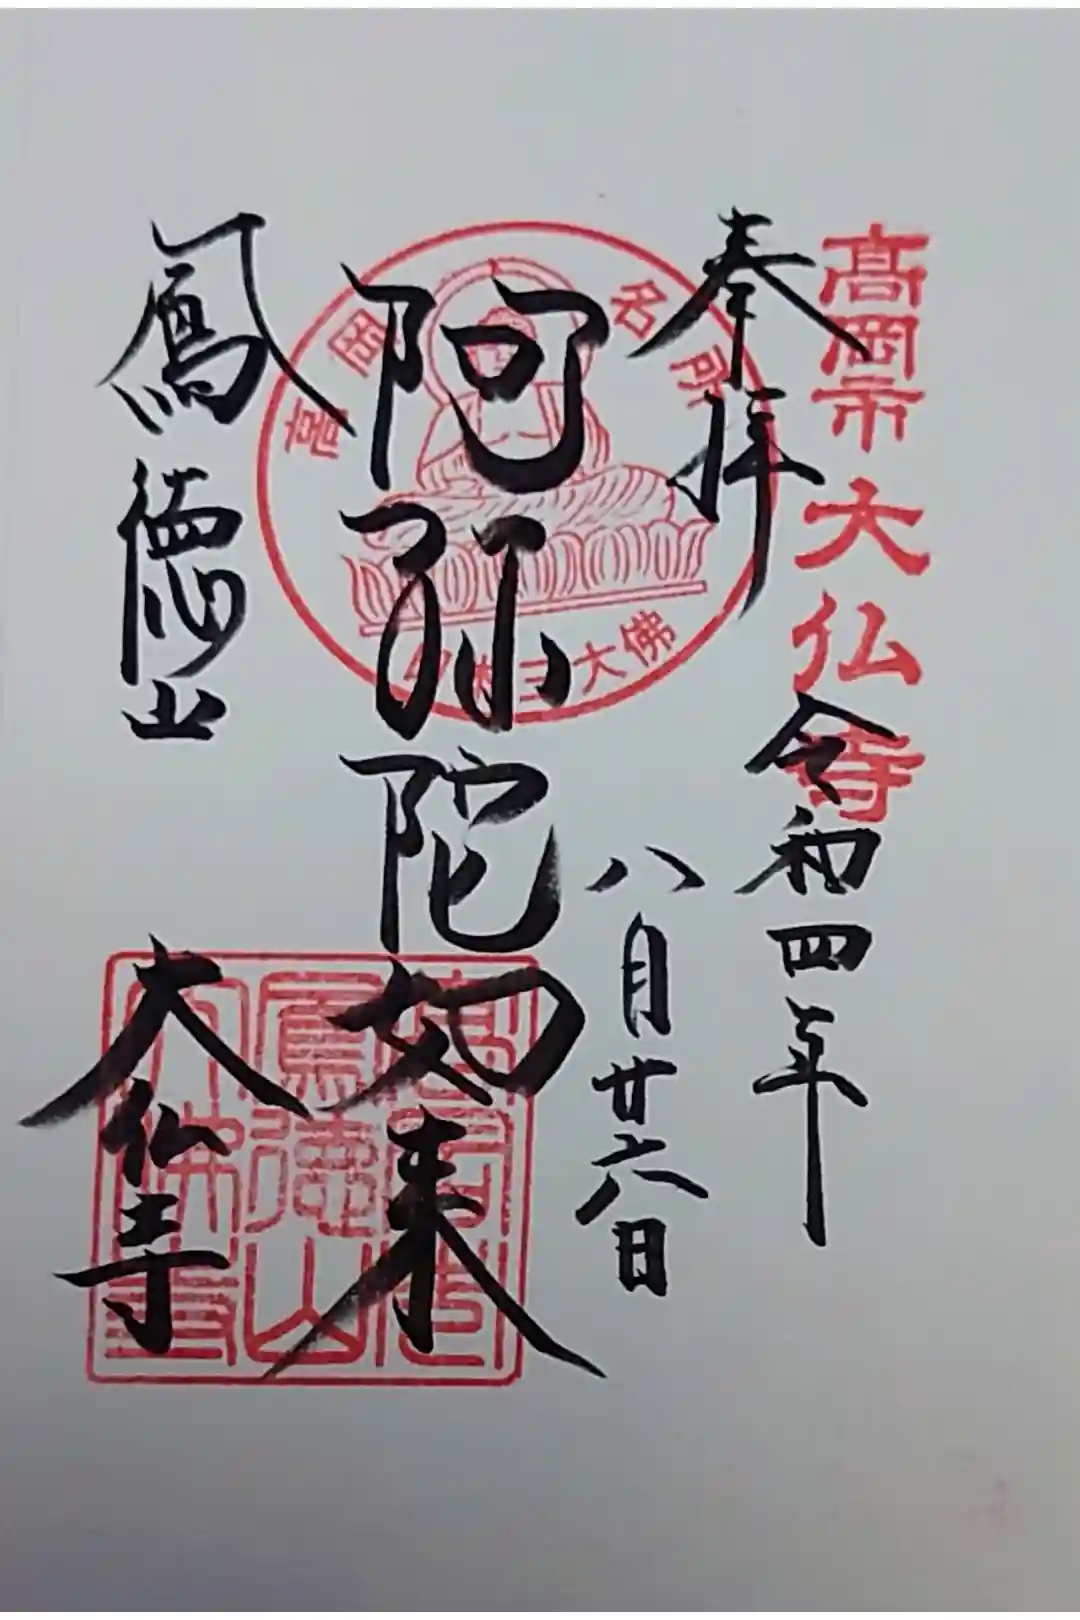 高岡市大仏寺
奉拝
令和四年
八月廿六日
高岡名所
日本三大佛
阿弥陀如来
鳳徳山
大仏寺
鳳徳山